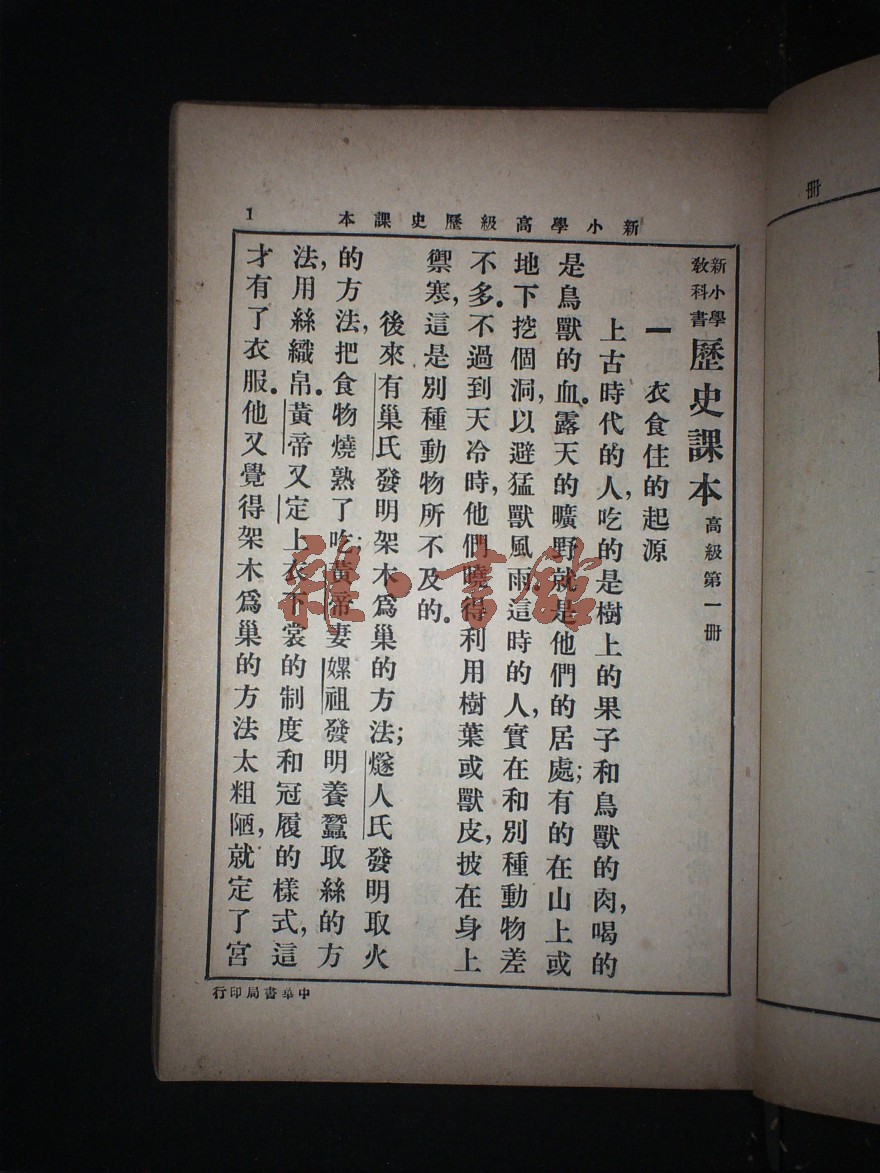 新小學高級歷史課本
1
新小學
教科書
歷史課本
高級第一冊
一 衣食住的起源
上古時代的人,吃的是樹上的果子和鳥獸的肉,喝的
是鳥獸的血。露天的曠野就是他們的居處;有的在山上或
地下挖個洞,以避猛獸風雨。這時的人,實在和別種動物差
不多。不過到天冷時,他們曉得利用樹葉或獸皮,披在身上
禦寒,這是別種動物所不及的。
後來有巢氏發明架木爲巢的方法;燧人氏發明取火
的方法,把食物燒熟了吃;黃帝妻嫘祖發明養蠶取絲的方
法,用絲織帛。黃帝又定上衣下裳的制度和冠履的樣式,這
才有了衣服。他又覺得架木爲巢的方法太粗陋,就定了宮
中華書局印行
冊
雜·書館